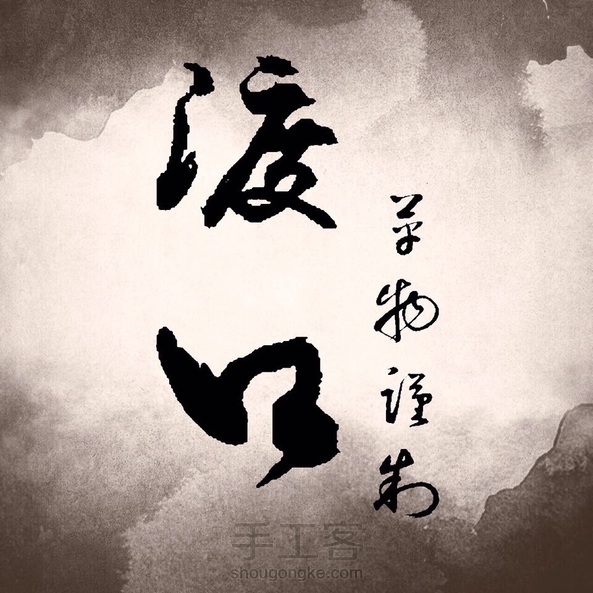 渡口
草物谨制
手工客
shougongke.com